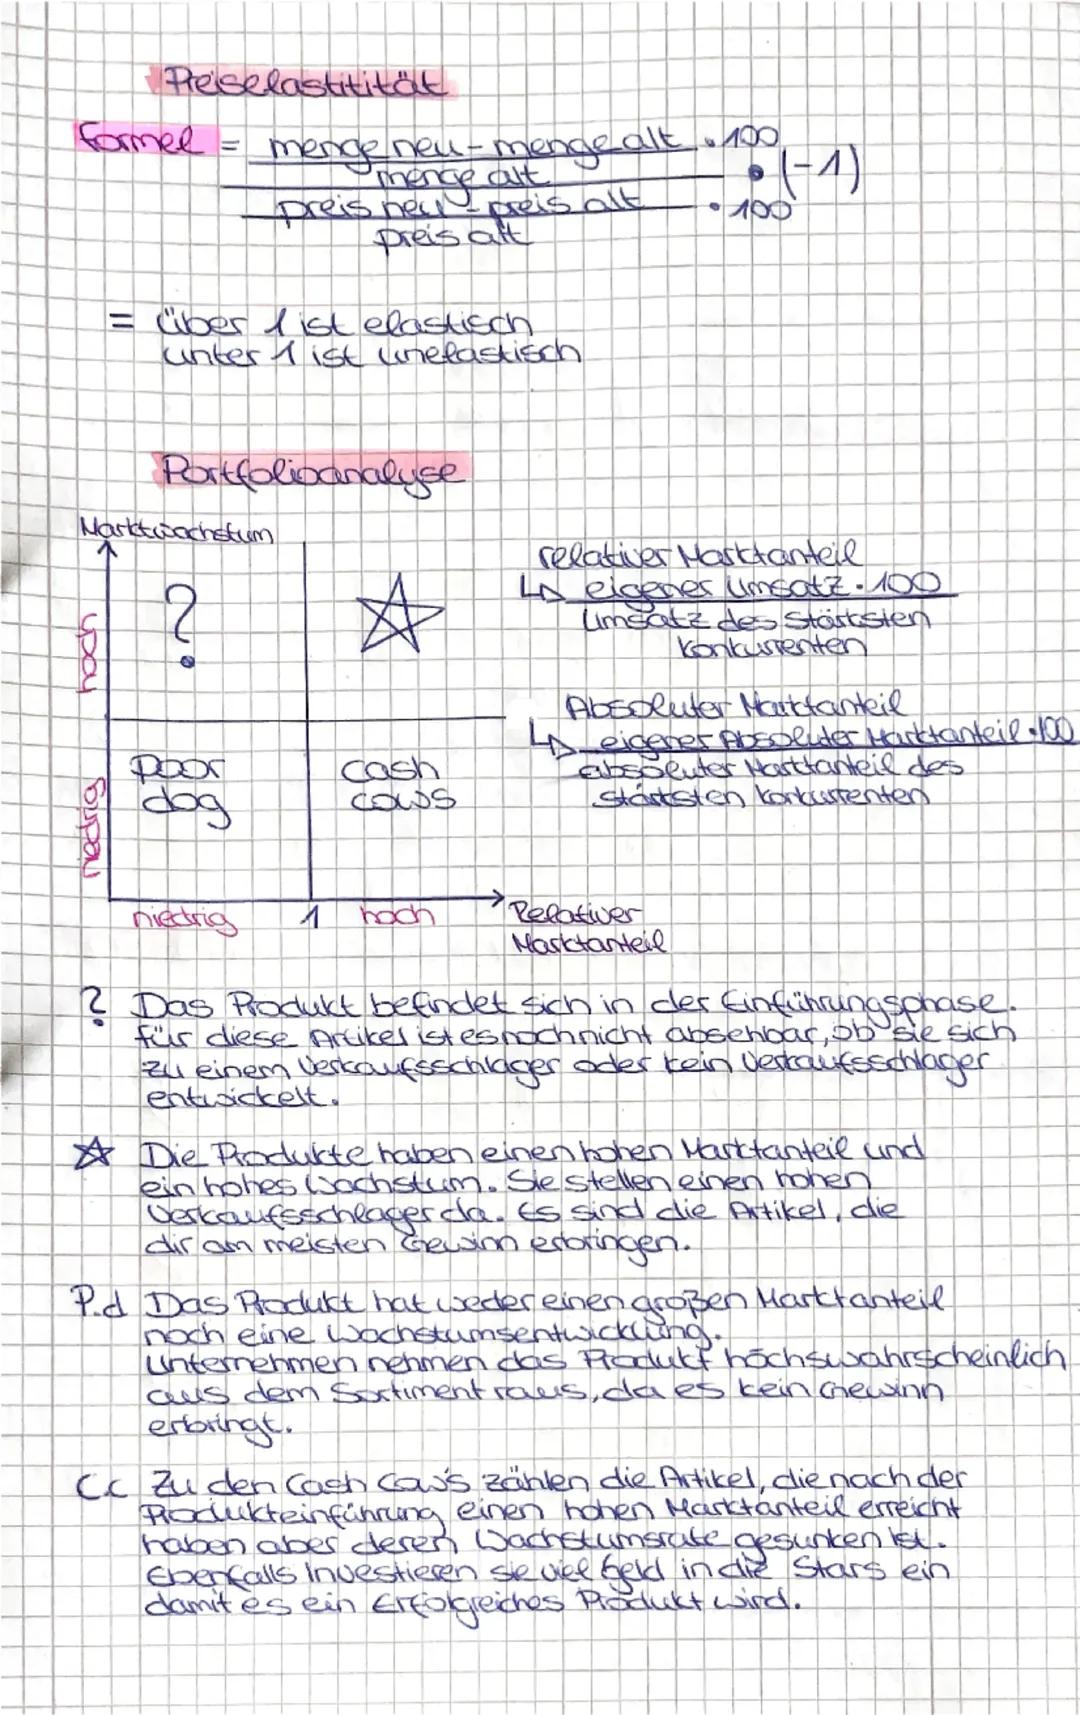 Preiselastitität
Formel = menge neu - menge alt · 100
menge alt
· (-1)
preis neu - preis alt · 100
preis alt
= über 1 ist elastisch
unter 1 ist unelastisch
Portfolioanalyse
Marktwachstum
hoch
niedrig
?
poor
dog
cash
cows
niedrig 1 hoch
Relativer
Marktanteil
relativer Marktanteil
↳ eigener Umsatz · 100
Umsatz des Stärksten
Konkurrenten
Absoluter Marktanteil
↳ eigener Absoluter Marktanteil · 100
absoluter Marktanteil des
stärksten Konkurrenten
? Das Produkt befindet sich in der Einführungsphase.
für diese Artikel ist es noch nicht absehbar, ob sie sich
zu einem Verkaufsschlager oder kein Verkaufsschlager
entwickelt.
☆ Die Produkte haben einen hohen Marktanteil und
ein hohes Wachstum. Sie stellen einen hohen
Verkaufsschlager da. Es sind die Artikel, die
dir am meisten Gewinn erbringen.
P.d Das Produkt hat weder einen großen Marktanteil
noch eine Wachstumsentwicklung.
Unternehmen nehmen das Produkt höchswahrscheinlich
aus dem Sortiment raus, da es kein Gewinn
erbringt.
Cc Zu den Cash Cow's zählen die Artikel, die nach der
Produkteinführung einen hohen Marktanteil erreicht
haben aber deren Wachstumsrate gesunken ist.
Ebenfalls Investieren sie viel Geld in die Stars ein
damit es ein Erfolgreiches Produkt wird.